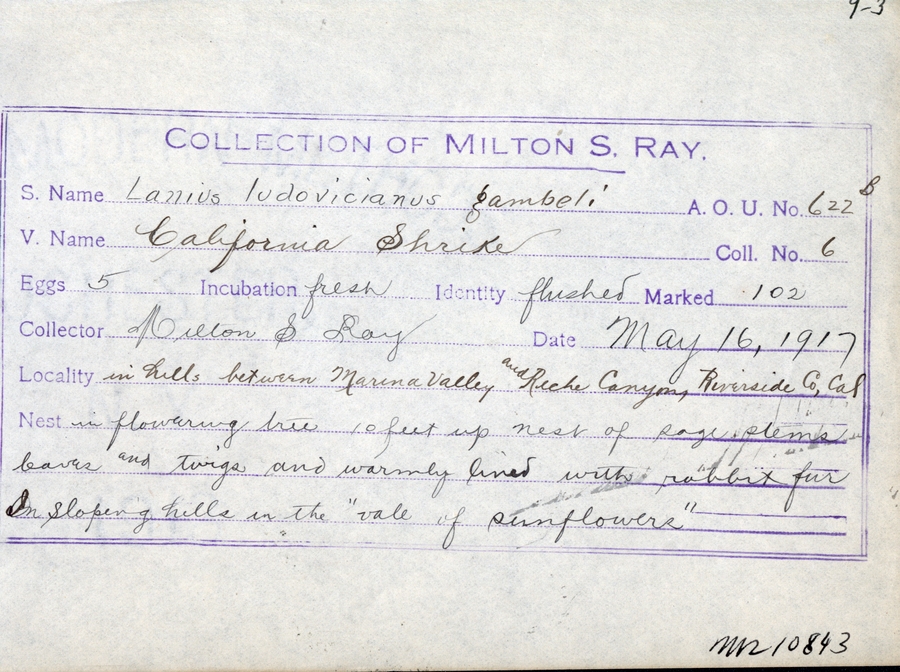 9-3
COLLECTION OF MILTON S. RAY.
S. Name Lanius ludovicianus gambeli A. O. U. No. 622 B
V. Name California Shrike Coll. No. 6
Eggs 5 Incubation fresh Identity flushed Marked 102
Collector Milton S Ray Date May 16, 1917
Locality in hills between Marina Valley and Reche Canyon, Riverside Co, Cal
Nest in flowering tree 10 feet up nest of sage stems
leaves and twigs and warmly lined with rabbit fur
In slopeing hills in the "vale of sunflowers"
10843